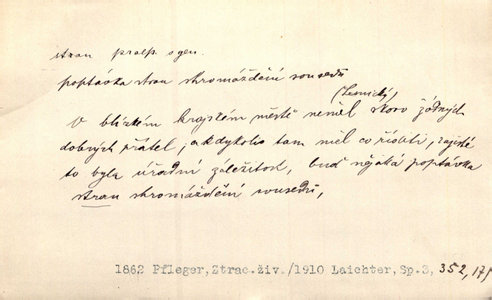 stran praep. s gen.
poptávka stran shromáždění sousedů
(Lesnický)
V blízkém krajském městě neměl skoro žádných
dobrých přátel, a kdykoliv tam měl co říditi, zajisté
to byla úřadní záležitost, buď nějaká poptávka
stran shromáždění sousedů,
1862 Pfleger, Ztrac. živ./1910 Laichter, Sp. 3, 352, 171